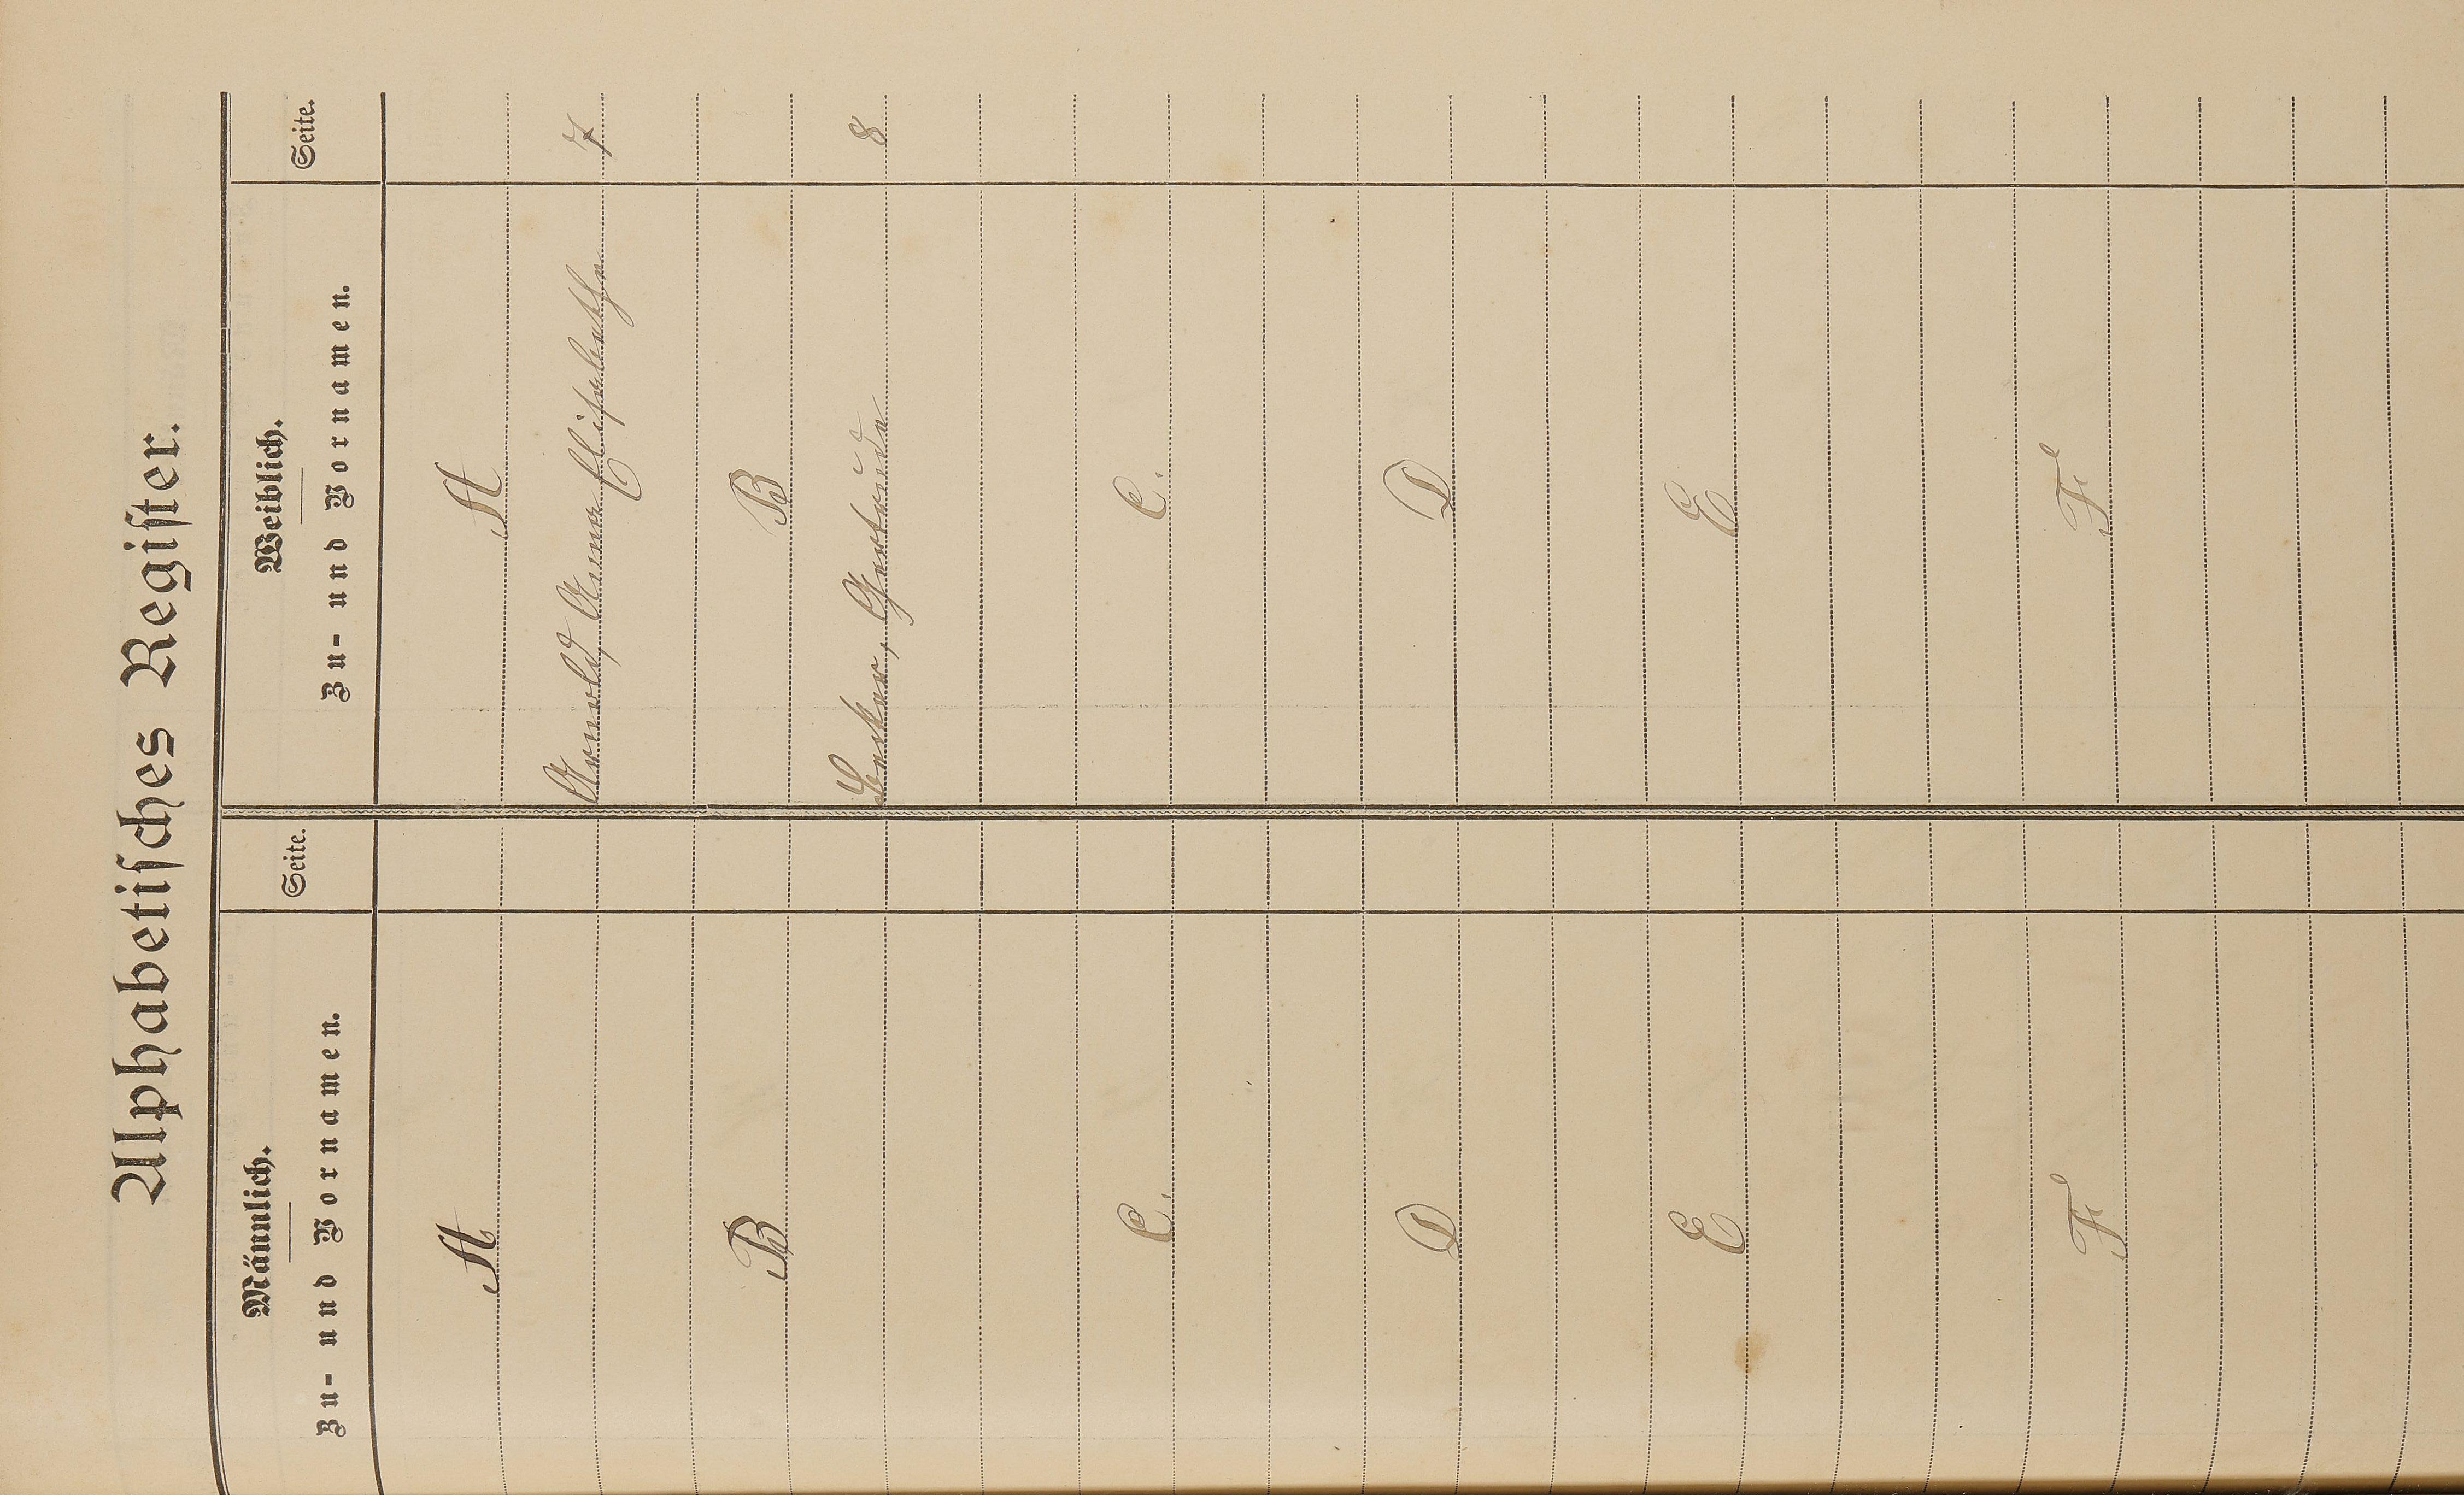 Alphabetisches Register.
Männlich.
Zu- und Vornamen.
Seite.
Weiblich.
Zu- und Vornamen.
Seite.
A
A
Arnold, Anna Elisabetha
7
B
B
Becker, Gertruda
8
C.
C.
D
D
E
E
F
F